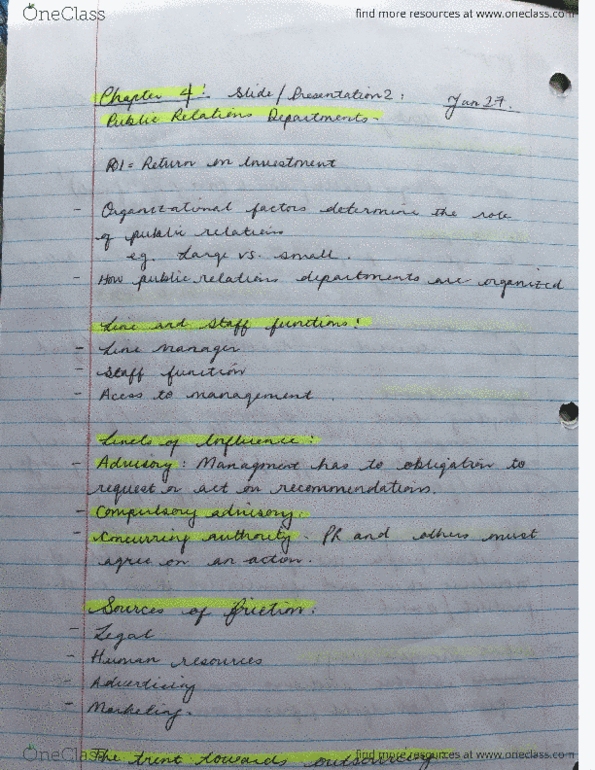 OneClass
find more resources at www.oneclass.com
Chapter 4: Slide/Presentation 2: Jan 27.
Public Relations Departments.
ROI = Return on Investment
- Organizational factors determine the role
of public relations
eg. Large vs. small.
- How public relations departments are organized
Line and Staff functions:
- Line manager
- Staff function
- Acess to management.
Levels of Influence:
- Advisory: Managment has to obligation to
request or act on recommendations.
- Compulsory advisory.
- Concurring authority. PR and others must
agree on an action.
Sources of friction:
- Legal
- Human resources
- Advertising
- Marketing.
The trent towards outsourcing
OneClass
find more resources at www.oneclass.com